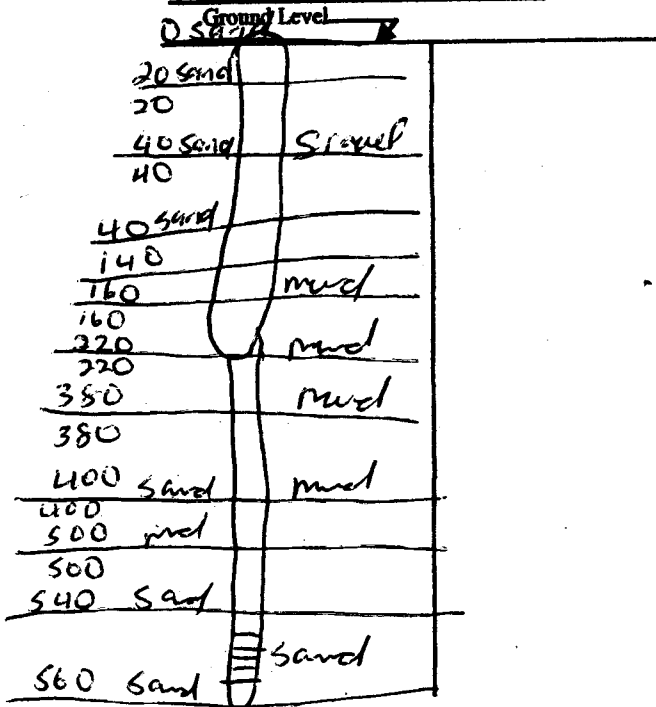 Ground Level
0 sand
20 sand
20
40 sand gravel
40
40 sand
140
160 mud
160
220 mud
220
380 mud
380
400 sand mud
400
500 mud
500
540 sand
sand
560 sand